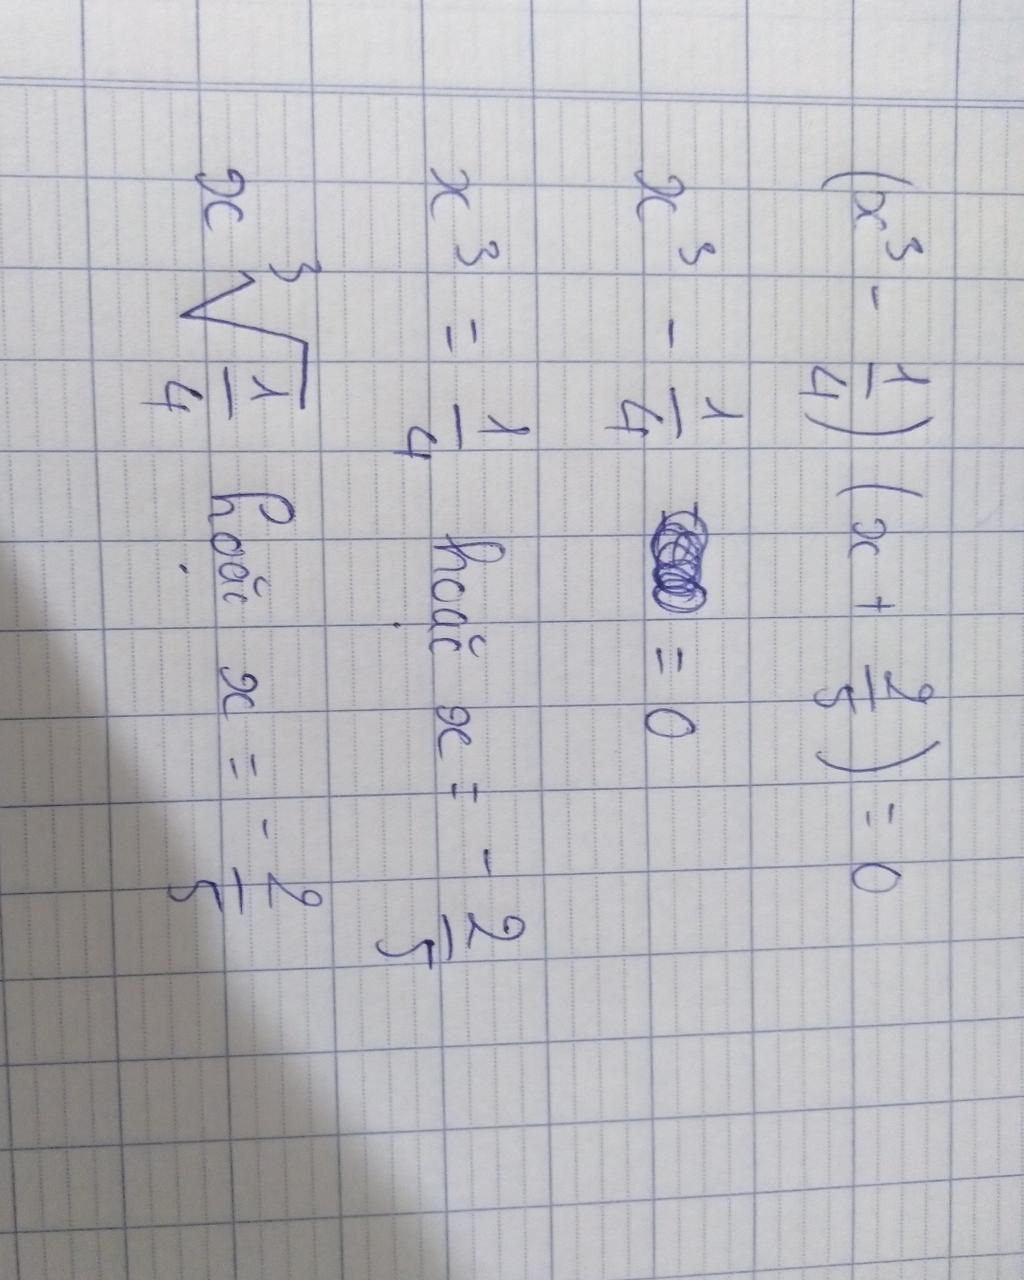 (x³ - 1/4) (x + 2/5) = 0
x³ - 1/4 = 0
x³ = 1/4 hoặc x = - 2/5
x ∛(1/4) hoặc x = - 2/5